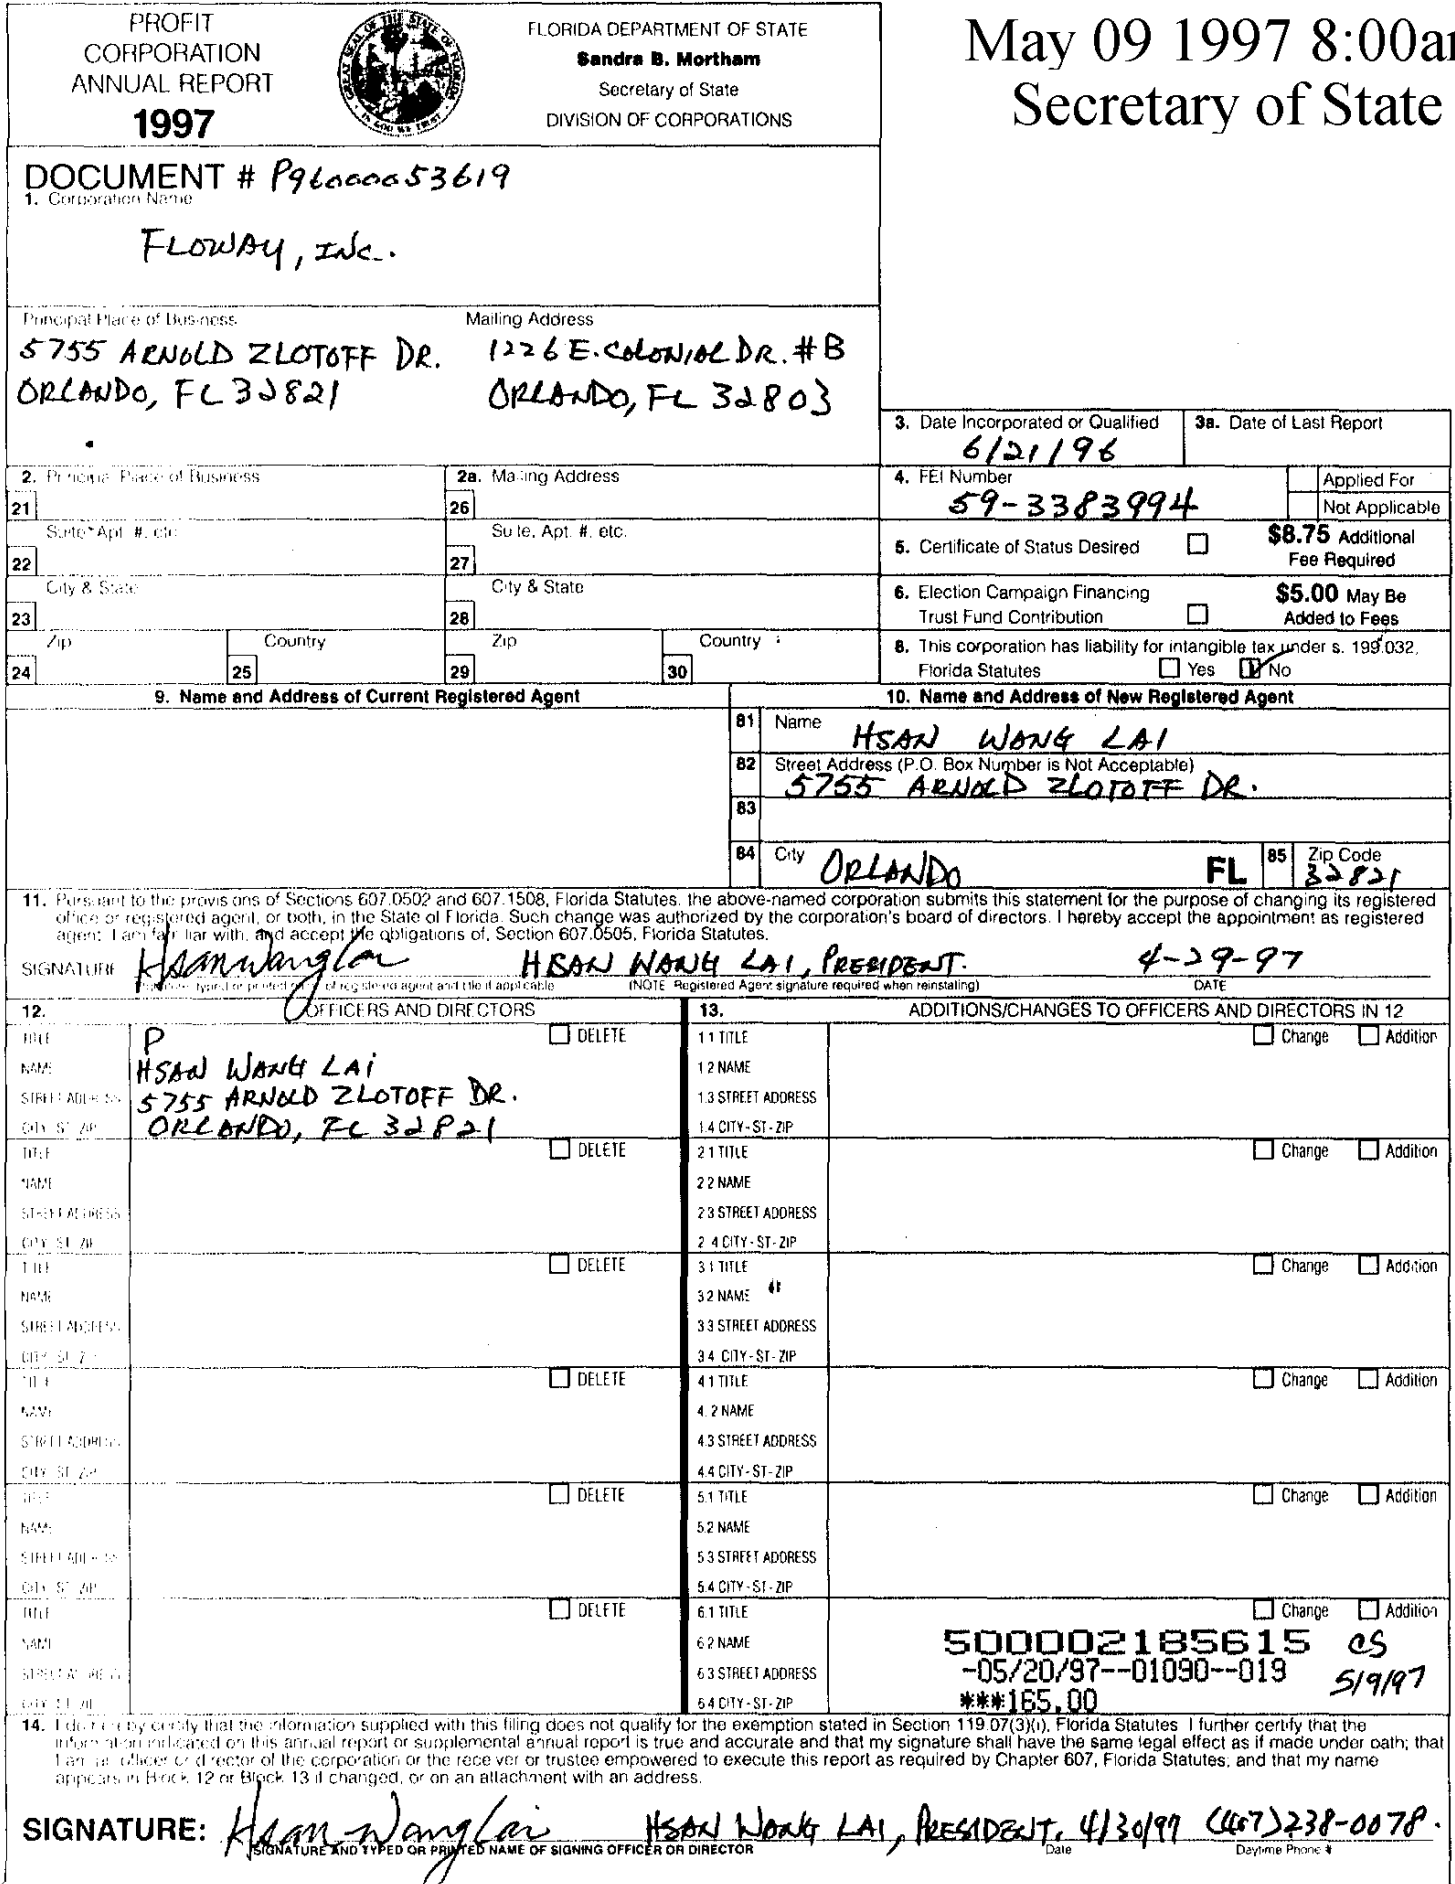 PROFIT
CORPORATION
ANNUAL REPORT
1997
GREAT SEAL OF THE STATE OF FLORIDA
IN GOD WE TRUST
FLORIDA DEPARTMENT OF STATE
Sandra B. Mortham
Secretary of State
DIVISION OF CORPORATIONS
May 09 1997 8:00a
Secretary of State
DOCUMENT # P96000053619
1. Corporation Name
FLOWAY, INC.
Principal Place of Business
5755 ARNOLD ZLOTOFF DR.
ORLANDO, FL 32821
Mailing Address
1226 E. COLONIAL DR. #B
ORLANDO, FL 32803
3. Date Incorporated or Qualified
6/21/96
3a. Date of Last Report
2. Principal Place of Business
2a. Mailing Address
4. FEI Number
59-3383994
Applied For
Not Applicable
21
26
Suite Apt. #, etc.
Suite, Apt. #, etc.
22
27
5. Certificate of Status Desired
$8.75 Additional
Fee Required
City & State
City & State
23
28
6. Election Campaign Financing
Trust Fund Contribution
$5.00 May Be
Added to Fees
Zip
Country
Zip
Country
24
25
29
30
8. This corporation has liability for intangible tax under s. 199.032,
Florida Statutes Yes No
9. Name and Address of Current Registered Agent
10. Name and Address of New Registered Agent
81 Name
HSAN WANG LAI
82 Street Address (P.O. Box Number is Not Acceptable)
5755 ARNOLD ZLOTOFF DR.
83
84 City ORLANDO FL 85 Zip Code
32821
11. Pursuant to the provisions of Sections 607.0502 and 607.1508, Florida Statutes, the above-named corporation submits this statement for the purpose of changing its registered
office or registered agent, or both, in the State of Florida. Such change was authorized by the corporation's board of directors. I hereby accept the appointment as registered
agent. I am familiar with, and accept the obligations of, Section 607.0505, Florida Statutes.
SIGNATURE Hsan Wang Lai HSAN WANG LAI, PRESIDENT. 4-29-97
typed or printed of registered agent and title if applicable (NOTE Registered Agent signature required when reinstating) DATE
12. OFFICERS AND DIRECTORS
13. ADDITIONS/CHANGES TO OFFICERS AND DIRECTORS IN 12
TITLE P DELETE
NAME HSAN WANG LAI
STREET ADDRESS 5755 ARNOLD ZLOTOFF DR.
CITY ST ZIP ORLANDO, FL 32821
1 1 TITLE Change Addition
1 2 NAME
1.3 STREET ADDRESS
1.4 CITY-ST-ZIP
TITLE DELETE
NAME
STREET ADDRESS
CITY ST ZIP
2 1 TITLE Change Addition
2 2 NAME
2 3 STREET ADDRESS
2 4 CITY-ST-ZIP
TITLE DELETE
NAME
STREET ADDRESS
CITY ST ZIP
3 1 TITLE Change Addition
3 2 NAME
3 3 STREET ADDRESS
3 4 CITY-ST-ZIP
TITLE DELETE
NAME
STREET ADDRESS
CITY ST ZIP
4 1 TITLE Change Addition
4. 2 NAME
4.3 STREET ADDRESS
4.4 CITY-ST-ZIP
TITLE DELETE
NAME
STREET ADDRESS
CITY ST ZIP
5.1 TITLE Change Addition
5.2 NAME
5 3 STREET ADDRESS
5.4 CITY-ST-ZIP
TITLE DELETE
NAME
STREET ADDRESS
CITY ST ZIP
6.1 TITLE Change Addition
6 2 NAME
6 3 STREET ADDRESS
6 4 CITY-ST-ZIP
500002185615
-05/20/97--01090--019
***165.00
CS
5/9/97
14. I do hereby certify that the information supplied with this filing does not qualify for the exemption stated in Section 119.07(3)(i), Florida Statutes I further certify that the
information indicated on this annual report or supplemental annual report is true and accurate and that my signature shall have the same legal effect as if made under oath; that
I am an officer or director of the corporation or the receiver or trustee empowered to execute this report as required by Chapter 607, Florida Statutes; and that my name
appears in Block 12 or Block 13 if changed, or on an attachment with an address.
SIGNATURE: Hsan Wang Lai HSAN WANG LAI, PRESIDENT. 4/30/97 (407)238-0078.
SIGNATURE AND TYPED OR PRINTED NAME OF SIGNING OFFICER OR DIRECTOR Date Daytime Phone #